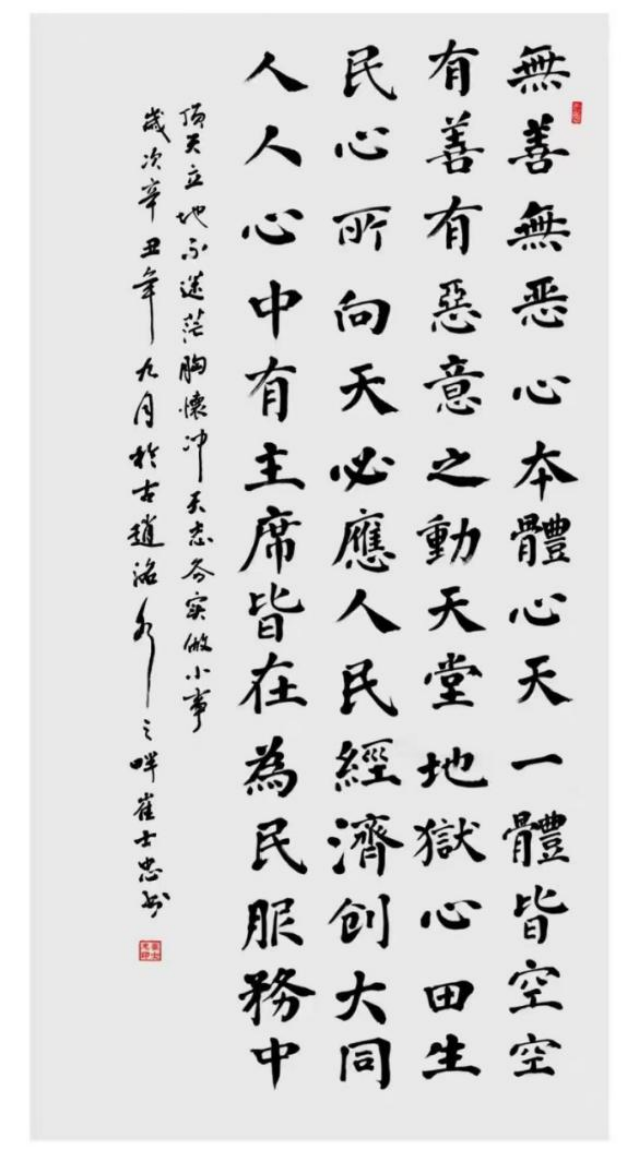 無善無恶心本體心天一體皆空空
有善有惡意之動天堂地獄心田生
民心所向天必應人民經濟创大同
人人心中有主席皆在為民服務中
顶天立地不迷茫胸懷冲天志务实做小事
歲次辛丑年九月於古趙洺水之畔崔士忠书